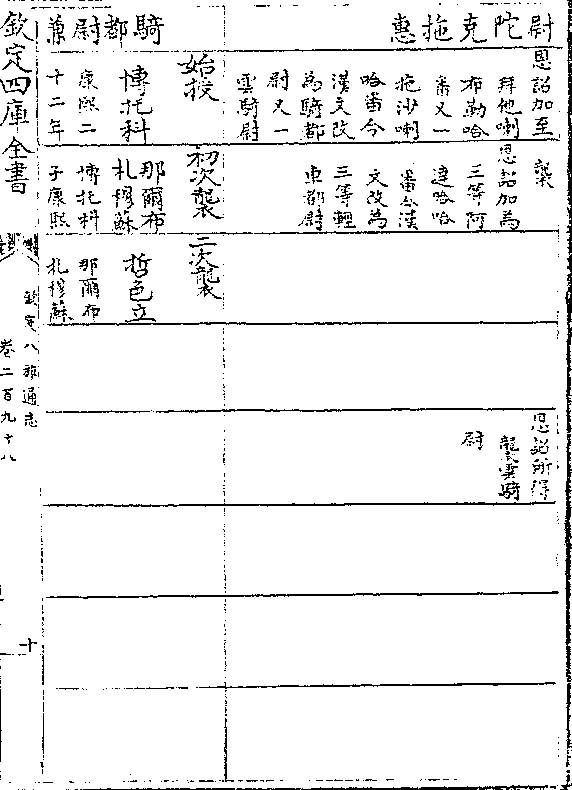 尉陀克拖惠
恩詔加至
拜他喇
布勒哈
番又一
拖沙喇
哈番今
漢文改
為騎都
尉又一
雲騎尉
襲
恩詔加為
三等阿
達哈哈
番今漢
文改為
三等輕
車都尉
恩詔所得
襲雲騎
尉
騎都尉兼
始授
博托科
康熙二
十二年
初次襲
那爾布
札穆蘇
博托科
子康熙
二次襲
哲色立
那爾布
札穆蘇
欽定四庫全書
欽定八旗通志
卷二百九十八
十